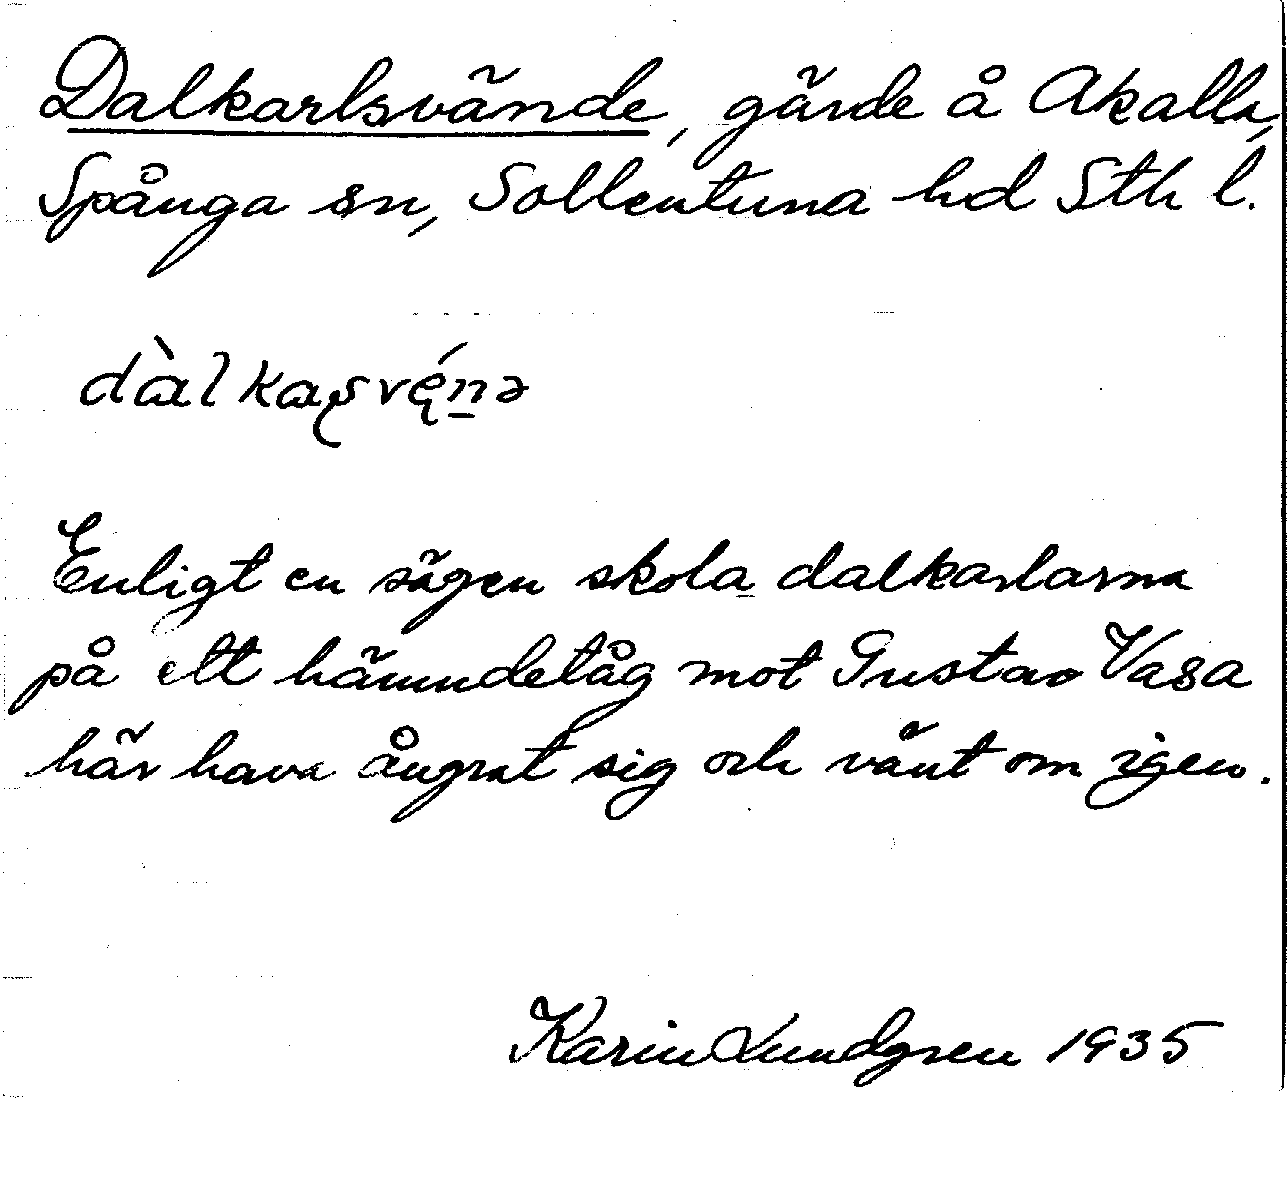 Dalkarlsvände, gärde å Akalla,
Spånga sn, Sollentuna hd Sth l.
dàlkaʂvę́n̲ə
Enligt en sägen skola dalkarlarna
på ett hämndetåg mot Gustav Vasa
här hava ångrat sig och vänt om igen.
Karin Lundgren 1935